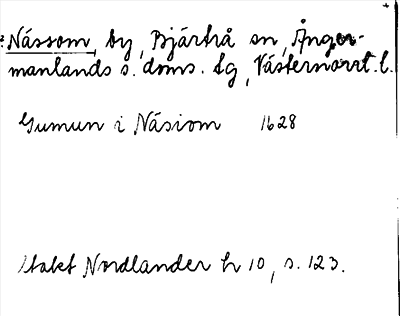 Nässom, by, Bjärtrå sn, Ånger-
manlands s. doms. tg, Västernorrl. l.
Gumun i Näsiom 1628
Nordlander h 10, s. 123.